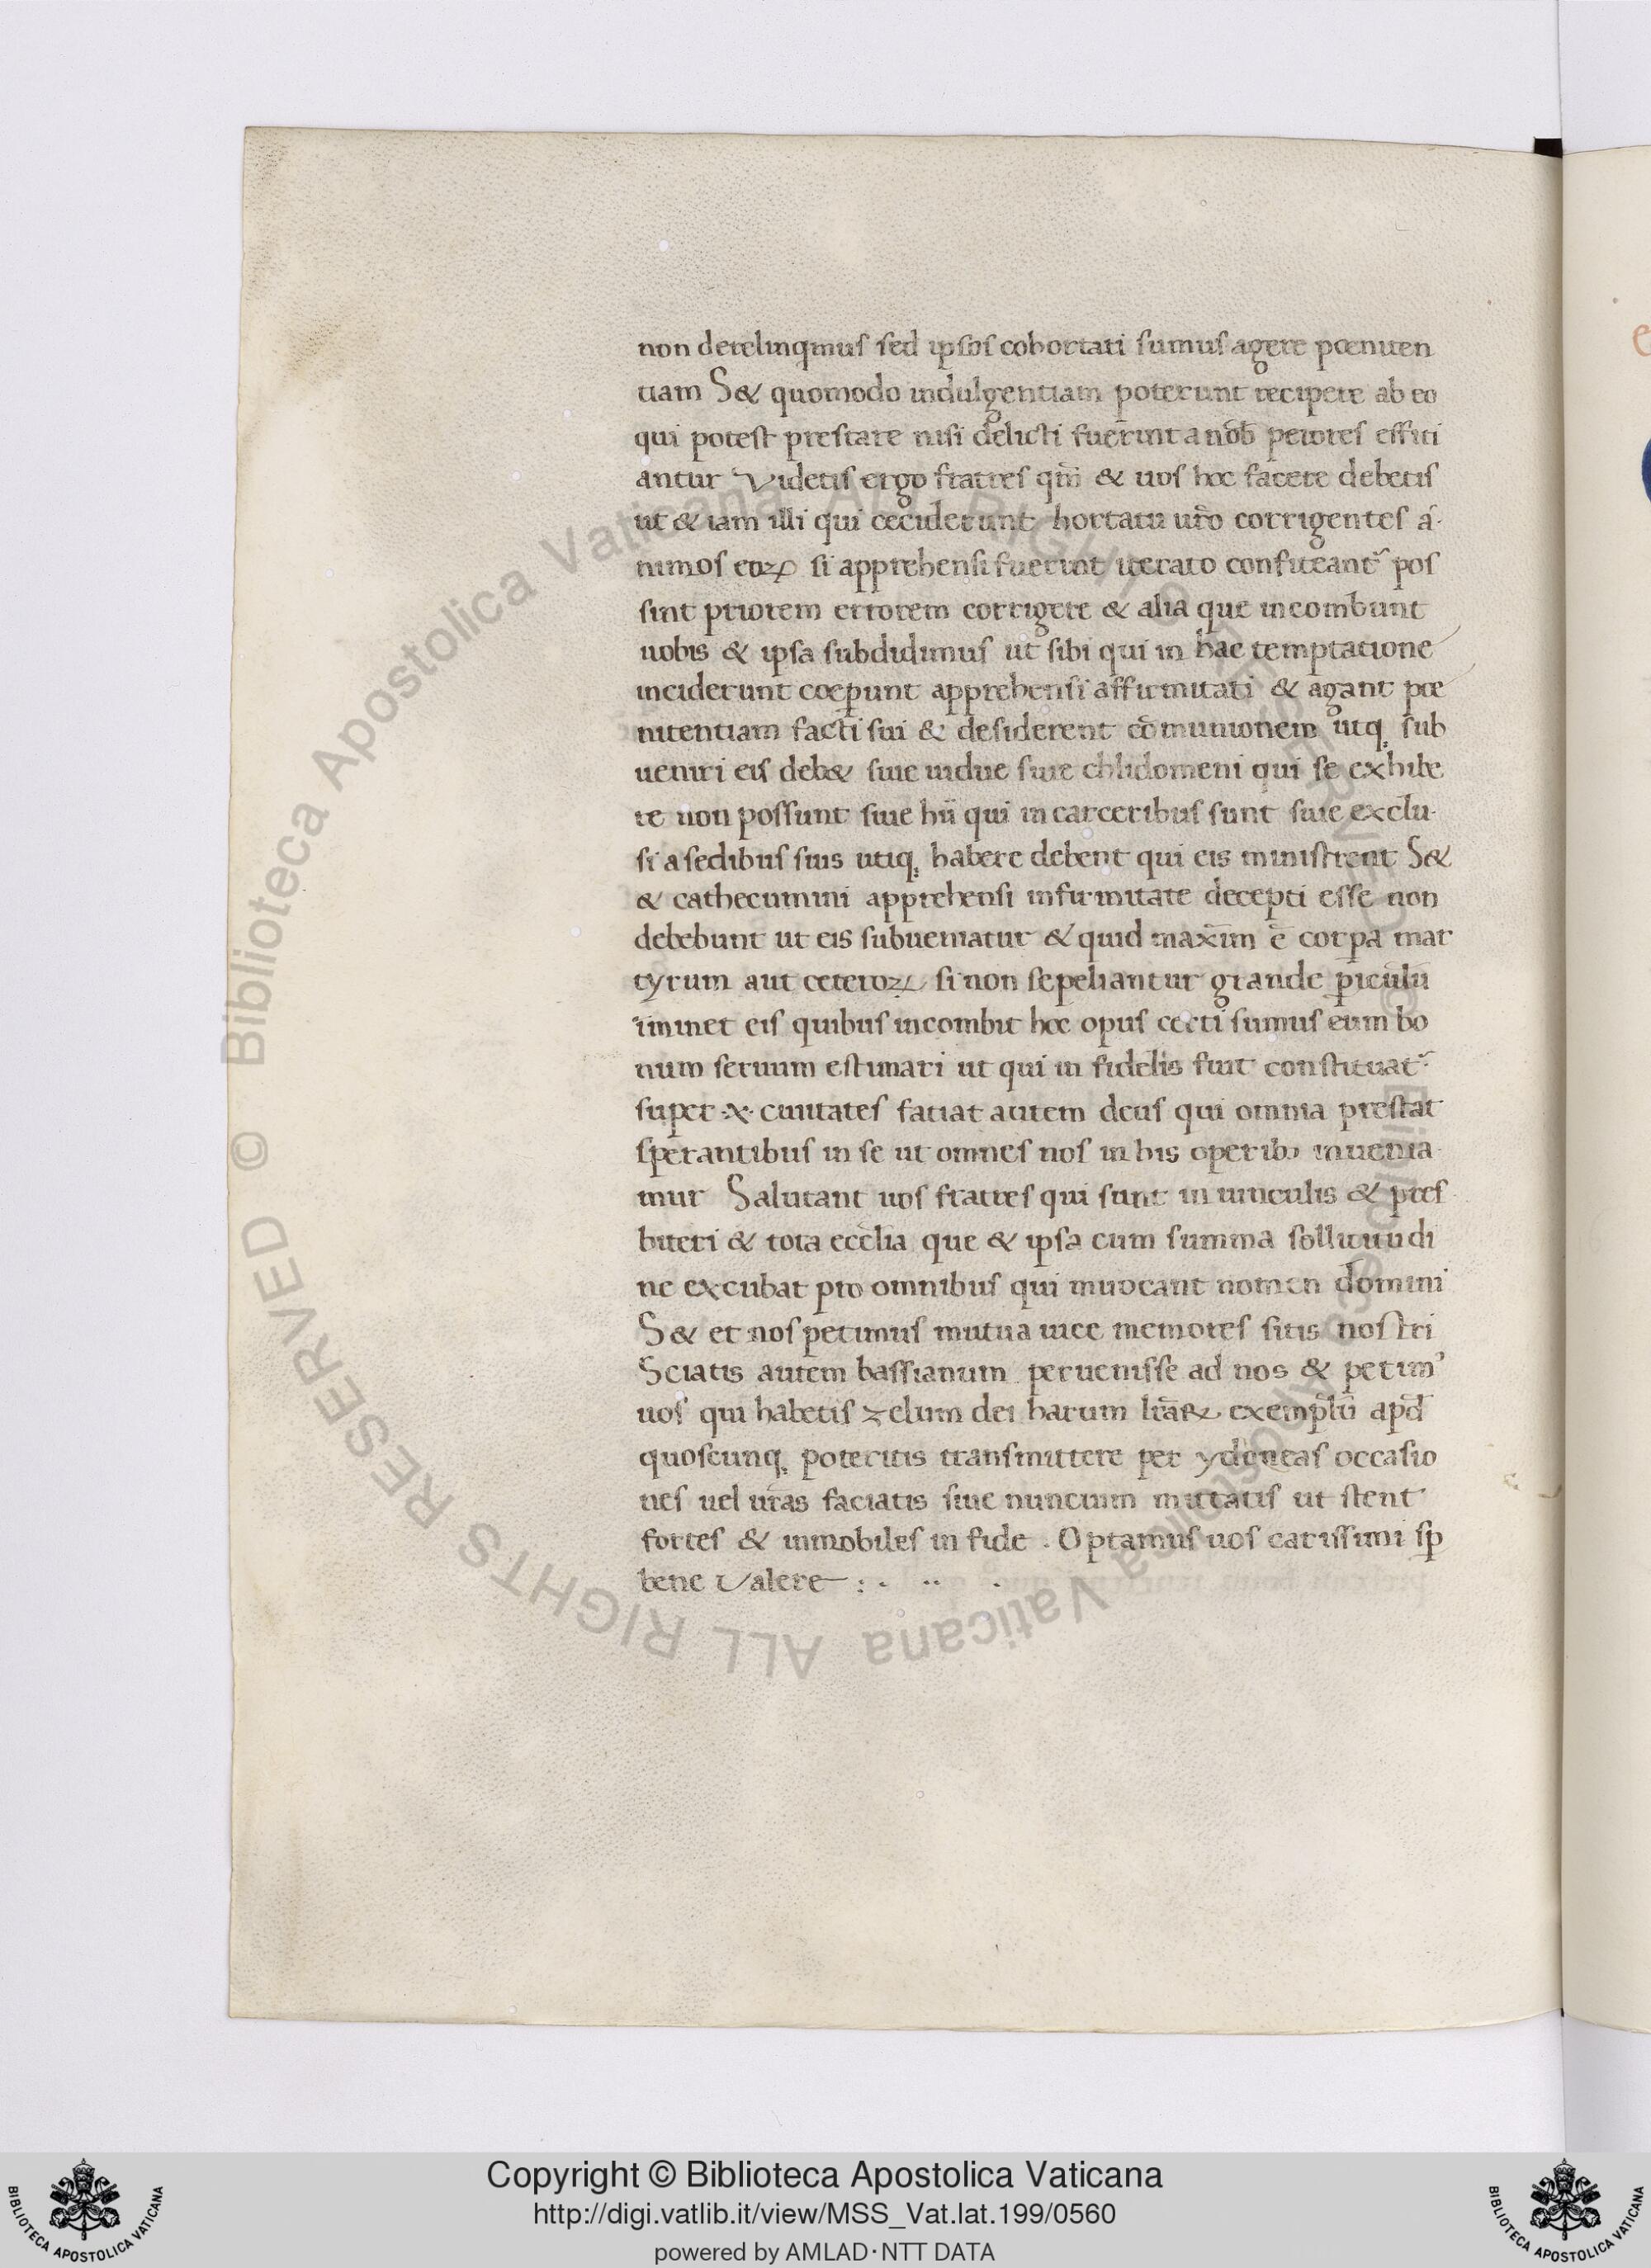 non derelinqmus sed ipsos cohortati sumus agere pœniten
tiam S& quomodo indulgentiam poterunt recipere ab eo
qui potest prestare nisi delicti fuerint a nob̄ peiores effici
antur Videtis ergo fratres qm̄ & uos hoc facere debetis
ut & iam illi qui ceciderunt hortatu ur̄o corrigentes á-
nimos eoꝝ si apprehensi fuerint iterato confiteant᷑ pos
sint priorem errorem corrigere & alia que incombunt
uobis & ipsa subdidimus ut sibi qui in hac temptatione
inciderunt coeꝑunt apprehensi affirmitati & agant pœ
nitentiam facti sui & desiderent cōmunionem utiq; sub
ueniri eis deb& siue uidue siue chlidomeni qui se exhibe
re non possunt siue hii qui in carceribus sunt siue exclu-
si a sedibus suis utiq; habere debent qui eis ministrent S&
& cathecumini apprehensi infirmitate decepti esse non
debebunt ut eis subueniatur & quid maxim̄ ē corꝑa mar
tyrum aut ceteroꝝ si non sepeliantur grande ꝑiculū
iminet eis quibus incombit hoc opus certi sumus eum bo
num seruum estimari ut qui in fidelis fuit constituat᷑
super ·x· ciuitates faciat autem deus qui omnia prestat
sperantibus in se ut omnes nos in his operibꝫ inuenia
mur Salutant uos fratres qui sunt in uinculis & pres
biteri & tota ecc̄lia que & ipsa cum summa sollicitudi
ne excubat pro omnibus qui inuocant nomen domini
S& et nos petimus mutua uice memores sitis nostri
Sciatis autem bassianum peruenisse ad nos & petimꝰ
uos qui habetis zelum dei harum lr̄aꝝ exemplū apd̄
quoscunq; poteritis transmittere per ydoneas occasio
nes uel ur̄as faciatis siue nuncium mittatis ut stent
fortes & inmobiles in fide . Optamus uos carissimi sp̄
bene Valere : . .. .
Copyright © Biblioteca Apostolica Vaticana
http://digi.vatlib.it/view/MSS_Vat.lat.199/0560
powered by AMLAD·NTT DATA
BIBLIOTECA APOSTOLICA VATICANA
BIBLIOTECA APOSTOLICA VATICANA
© Biblioteca Apostolica Vaticana ALL RIGHTS RESERVED
© Biblioteca Apostolica Vaticana ALL RIGHTS RESERVED